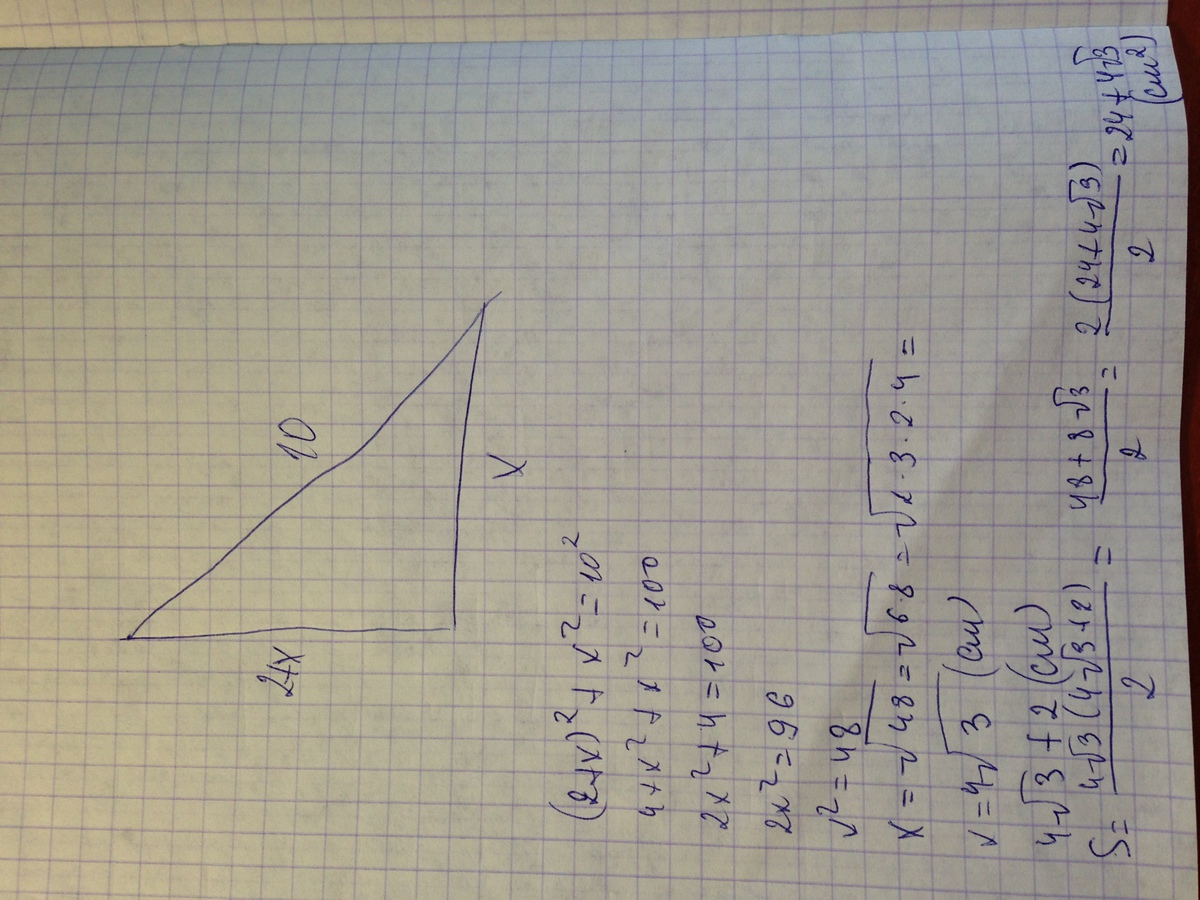 2+x
10
x
(2+x)²+x²=10²
4+x²+x²=100
2x²+4=100
2x²=96
x²=48
x=√48=√6·8=√2·3·2·4=
x=4√3 (см)
4√3+2 (см)
S=4√3(4√3+2)/2=48+8√3/2=2(24+4√3)/2=24+4√3 (см²)